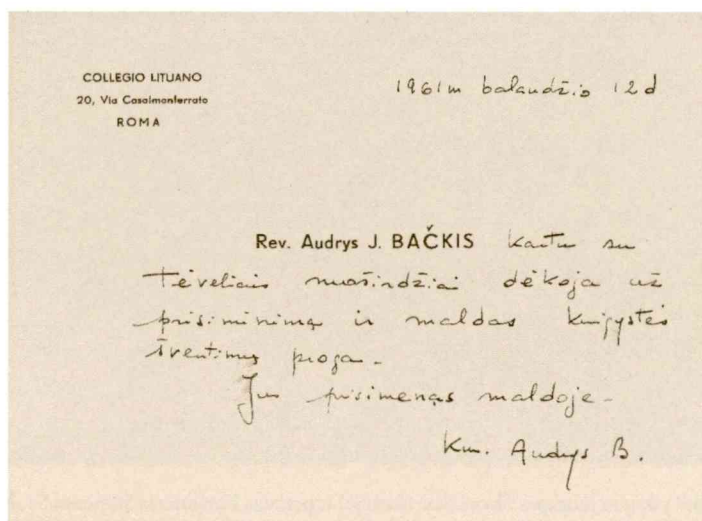 COLLEGIO LITUANO
20, Via Casalmonferrato
ROMA
1961m balandžio 12d
Rev. Audrys J. BAČKIS kartu su
Tėveliais nuoširdžiai dėkoja už
prisiminimą ir maldas kunigystės
šventimų proga.
Jus prisimenąs maldoje.
Kun. Audrys B.